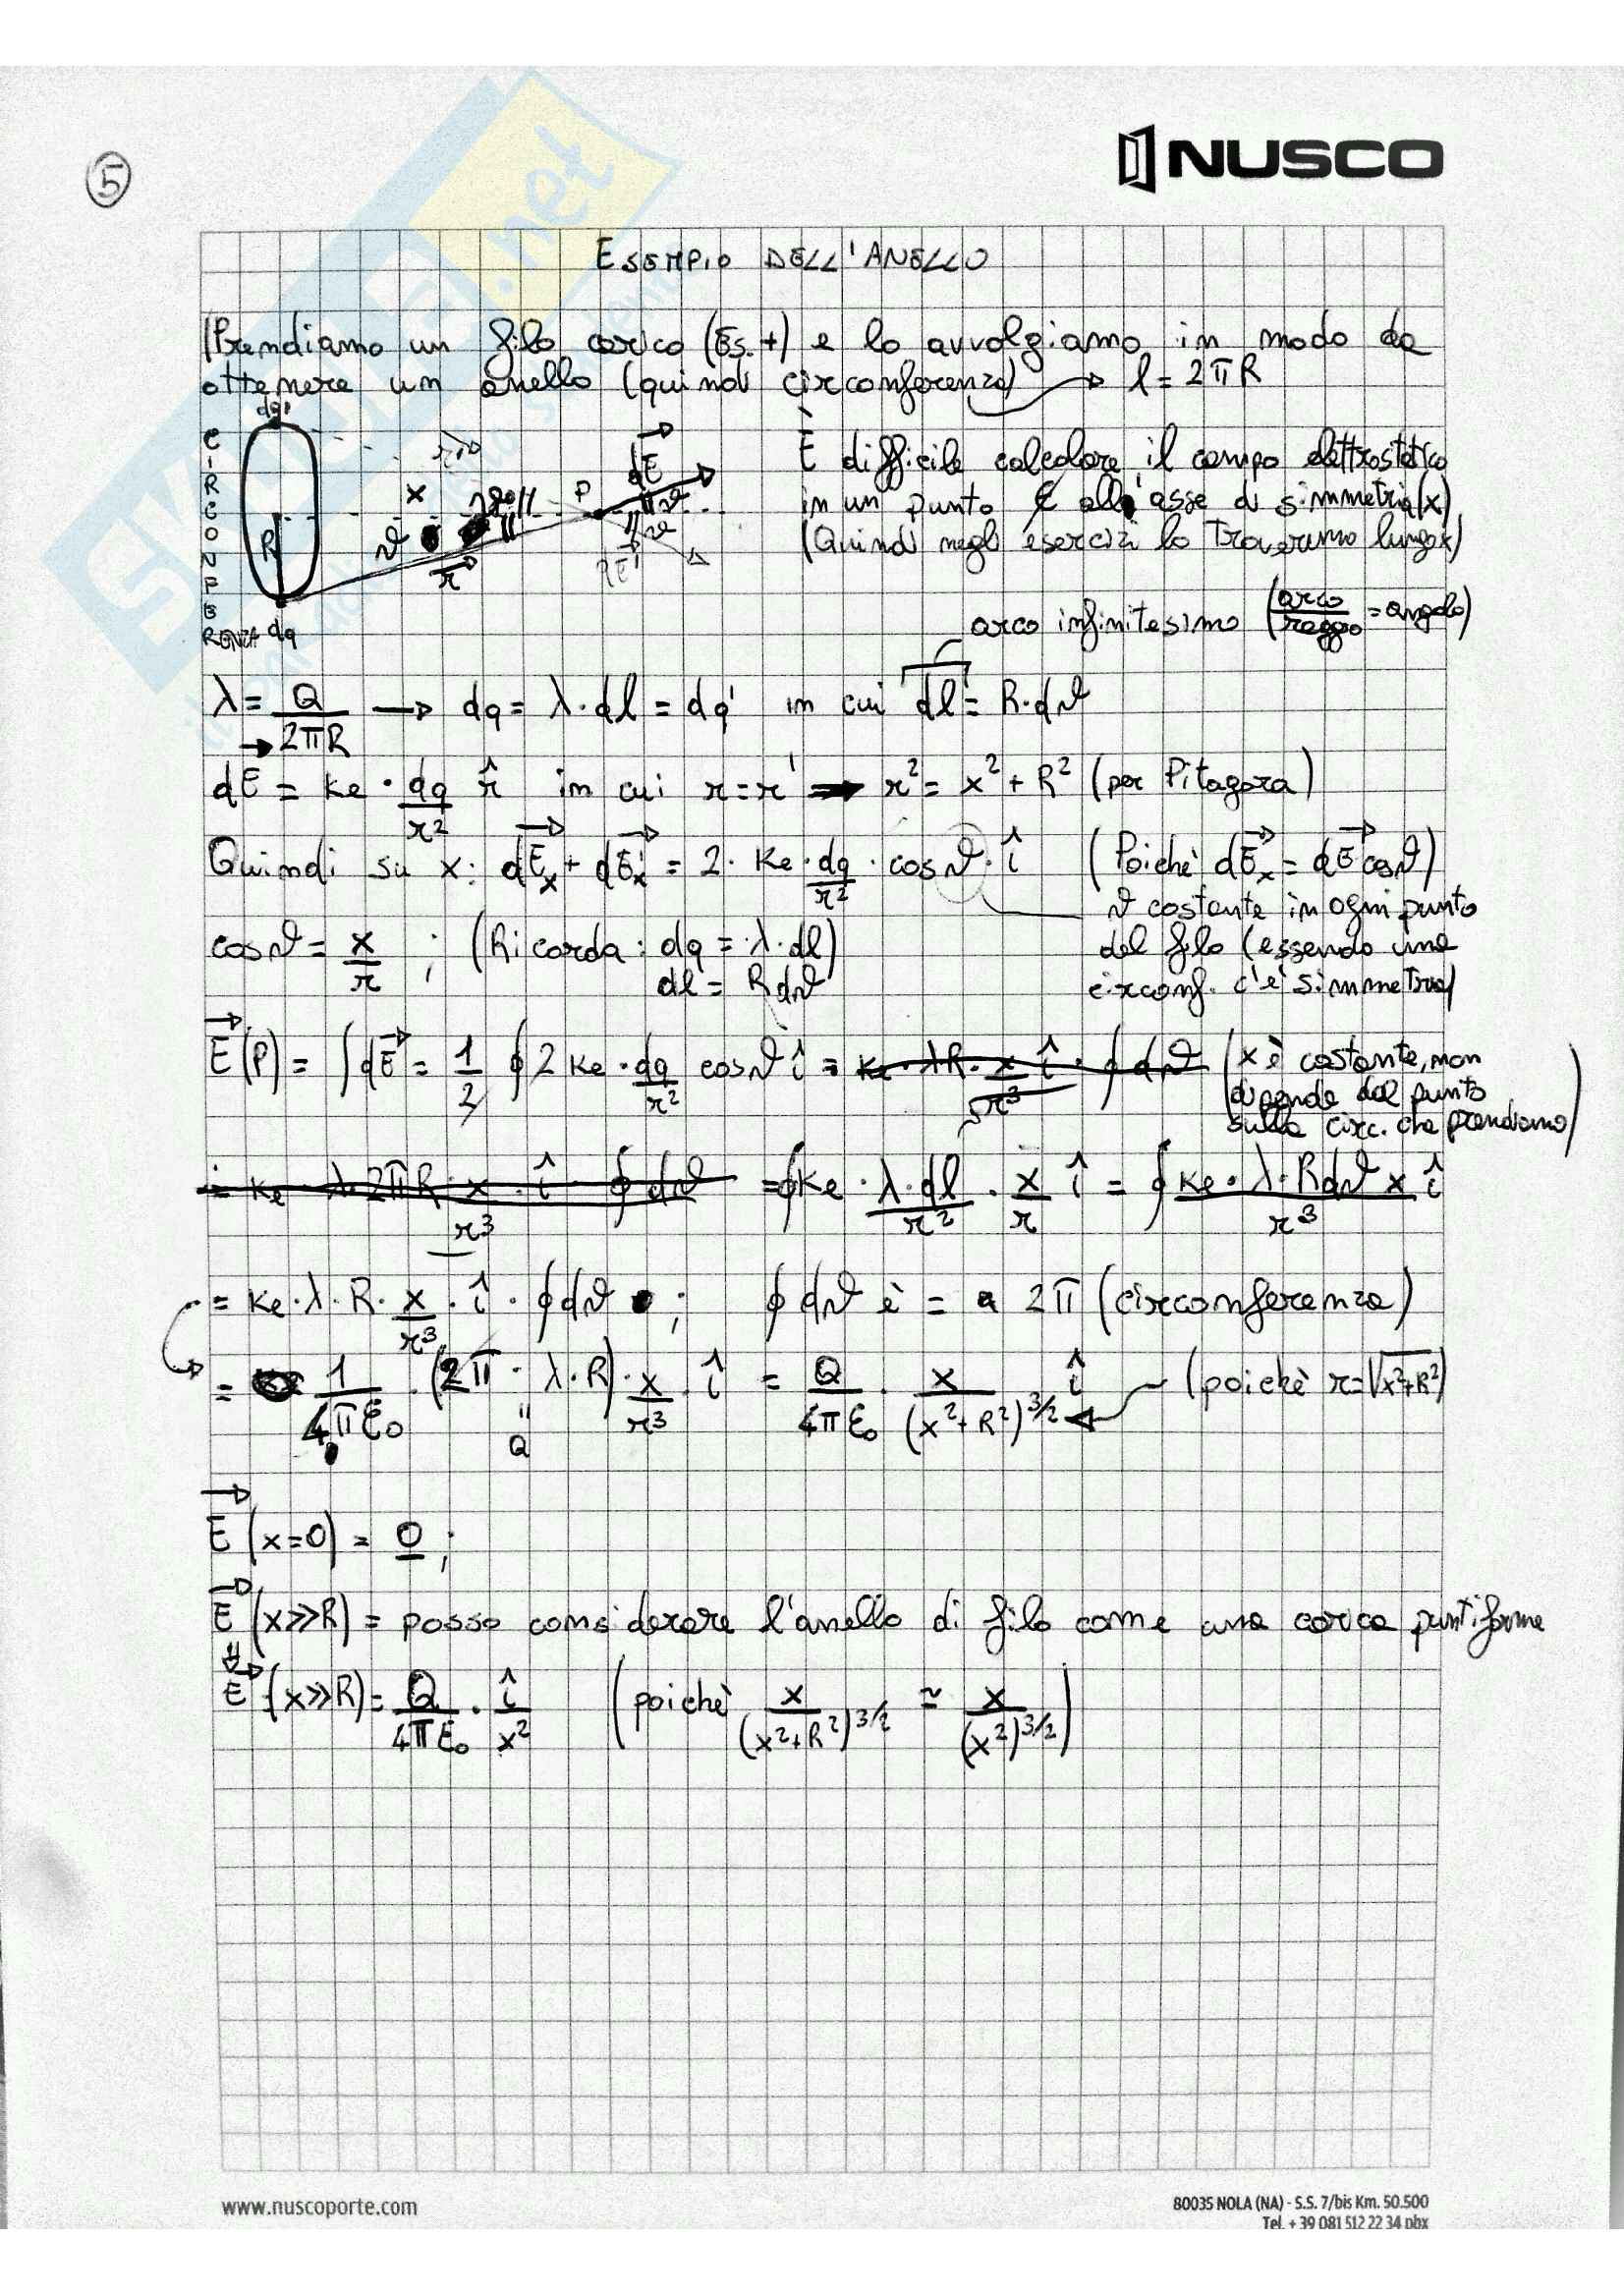 5
NUSCO
ESEMPIO DELL'ANELLO
Prendiamo un filo carico (Es. +) e lo avvolgiamo in modo da
ottenere un anello (quindi circonferenza) → l = 2πR
dq'
CIRCONFERENZA
R
x
P
dE
ϑ
ϑ
ϑ
r
dE'
dq
È difficile calcolare il campo elettrostatico
in un punto ∉ all'asse di simmetria (x)
(Quindi negli esercizi lo troveremo lungo x)
arco infinitesimo (arco/raggio = angolo)
λ = Q/2πR → dq = λ·dl = dq' in cui dl = R·dϑ
dE = ke · dq/r² r̂ in cui r = r' → r² = x² + R² (per Pitagora)
Quindi su x: dEx + dE'x = 2·ke·dq/r² · cosϑ·î (Poichè dEx = dE cosϑ)
ϑ costante in ogni punto
del filo (essendo una
circonf. c'è simmetria)
cosϑ = x/r ; (Ricorda: dq = λ·dl)
dl = Rdϑ
E(P) = ∫dE = 1/2 ∮ 2 ke·dq/r² cosϑ î = ke·λR·x/r³ î · ∮dϑ (x è costante, non
dipende dal punto
sulla circ. che prendiamo)
= ke·λ·2πR·x/r³·î ∮dϑ = ∮ke·λ·dl/r² · x/r î = ∮ ke·λ·Rdϑ x/r³ î
= ke·λ·R·x/r³·î·∮dϑ ; ∮dϑ è = a 2π (circonferenza)
= 1/4πε₀ · (2π·λ·R)·x/r³·î = Q/4πε₀ · x/(x²+R²)^3/2 î (poichè r=√x²+R²)
=
Q
E(x=0) = 0 ;
E(x≫R) = posso considerare l'anello di filo come una carica puntiforme
⇓
E(x≫R) = Q/4πε₀ · î/x² (poichè x/(x²+R²)^3/2 ≃ x/(x²)^3/2)
www.nuscoporte.com
80035 NOLA (NA) - S.S. 7/bis Km. 50.500
Tel. + 39 081 512 22 34 pbx